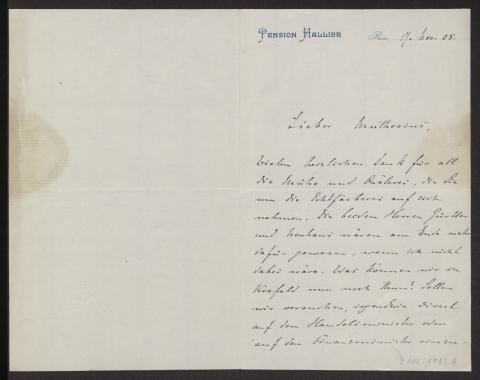 PENSION HALLIER
Rom 17. Nov. 05.
Lieber Muthesius,
Vielen herzlichen Dank für all
die Mühe und Quälerei, die Sie
um die Echtfärberei auf sich
nehmen. Die beiden Herren
und Neuhaus wären am Ende mehr
dafür gewesen, wenn ich nicht
dabei wäre. Was können wir in
Krefeld nun noch thun? Sollen
wir versuchen, irgendwie direct
auf den Handelsminister oder
auf den Finanzminister einen-